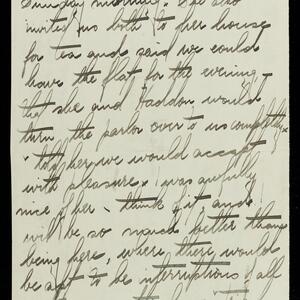 Sunday morning. She also
invited us both to her house
for tea and said we could
have the flat for the evening -
that she and Haddon would
turn the parlor over to us completely.
I told her we would accept
with pleasure. 'Twas awfully
nice of her to think of it and
will be so much better than
being here, where there would
be apt to be interruptions of all